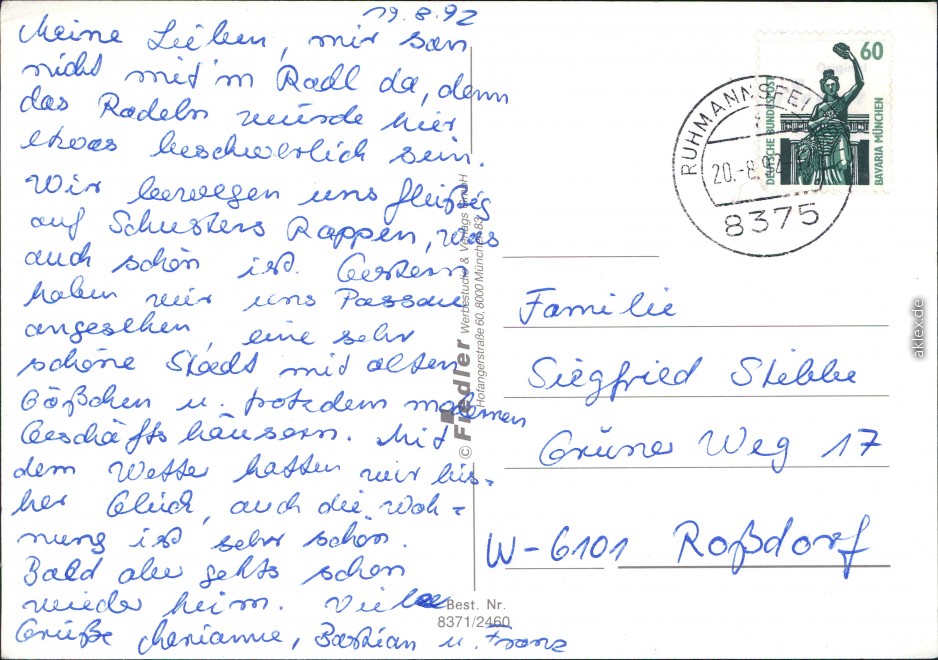 19.8.92
Meine Lieben, mir san
nicht mit'm Radl da, denn
das Radeln würde hier
etwas beschwerlich sein.
Wir bewegen uns fleißig
auf Schusters Rappen, was
auch schön ist. Gestern
haben wir uns Passau
angesehen, eine sehr
schöne Stadt mit alten
Gäßchen u. trotzdem modernen
Geschäftshäusern. Mit
dem Wetter hatten wir bis-
her Glück, auch die Woh-
nung ist sehr schön.
Bald aber gehts schon
wieder heim. Viele
Grüße Marianne, Bastian u. Franz
© Fiedler Werbestudio & Verlags GmbH
Hofangerstraße 60, 8000 München 83
Best. Nr.
8371/2460
RUHMANNSFEL
20.-8.92
8375
60
DEUTSCHE BUNDESPOST
BAVARIA MÜNCHEN
Familie
Siegfried Stibbe
Grüner Weg 17
W-6101 Roßdorf
aklex.de